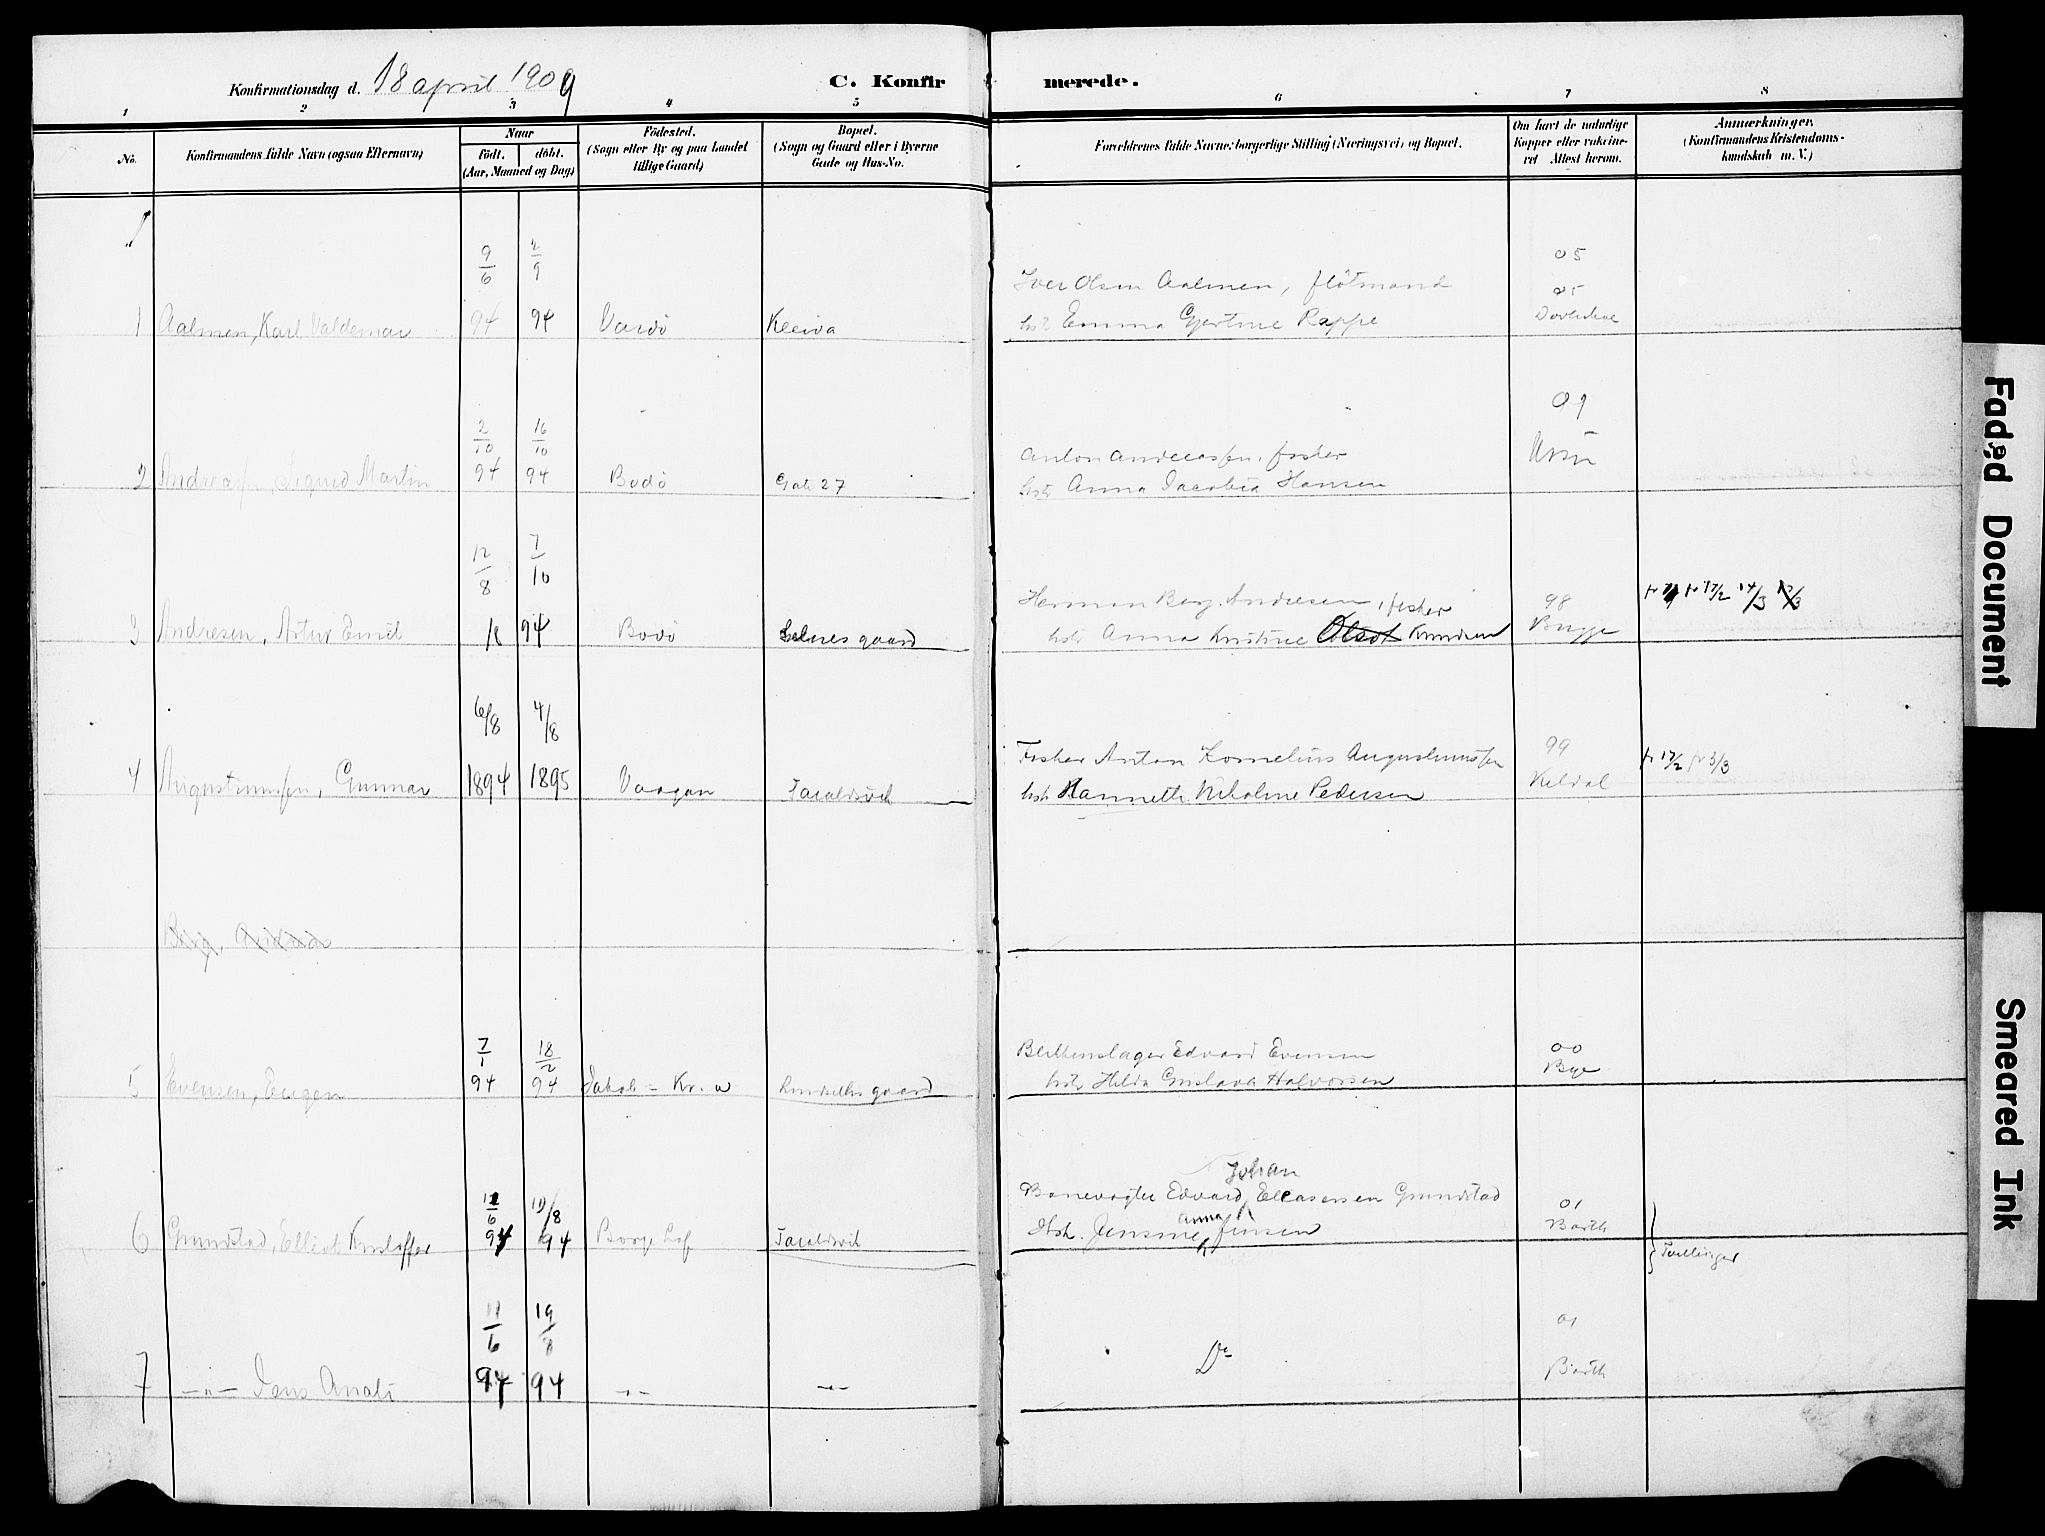 Konfirmationsdag d. 18 april 1909
C. Konfirmerede.
1 2 3 4 5 6 7 8
No.
Konfirmandens fulde Navn (ogsaa Efternavn)
Naar
födt. döbt.
(Aar, Maaned og Dag)
Födested.
(Sogn eller By og paa Landet
tillige Gaard)
Bopæl.
(Sogn og Gaard eller i Byerne
Gade og Hus-No.
Forældrenes fulde Navne, borgerlige Stilling (Næringsvei) og Bopæl.
Om havt de naturlige
Kopper eller vaccine-
ret Attest herom.
Anmærkninger.
(Konfirmandens Kristendoms-
kundskab m. V.)
1 Aalmen, Karl Valdemar
9/6 94
2/9 94
Vardö
Kleiva
Iver Olsen Aalmen, flötmand
hst Emma Gjertine Rappe
05
05
2 Andreassen, Sigurd Martin
2/10 94
16/10 94
Bodö
Gate 27
Anton Andreassen, fisker
hst Anna Jacobia Hansen
3 Andresen, Artur Emil
12/8
7/10 94
Bodö
Selnes gaard
Herman Berg Andresen, fisker
hst Anna Kristine Olsdt Knudsen
98
Bugge
17/2 14/3
4 Augustinussen, Gunnar
6/8 1894
4/8 1895
Vaagan
Taraldsvik
Fisker Anton Kornelius Augustinussen
hst Hannette Nikoline Pedersen
99
Keldal
fr 17/2 fr 3/3
Berg,
5 Evensen, Eugen
7/1 94
18/2 94
Jakob - Kr. a
gaard
Blikkenslager Edvard Evensen
hst Hilda Gustava Halvorsen
00
Bye
6 Grundstad, Elliot Kristoffer
11/6 94
19/8 94
Borge Lof
Taraldsvik
Johan
Banevogter Edvard Eleasersen Grundstad
Anna
Hst. Jensine Jensen
01
Barth
Tvillinger
7 -"- Jens Anati
11/6 94
19/8 94
-"-
-"-
Do
01
Barth
Faded Document
Smeared Ink